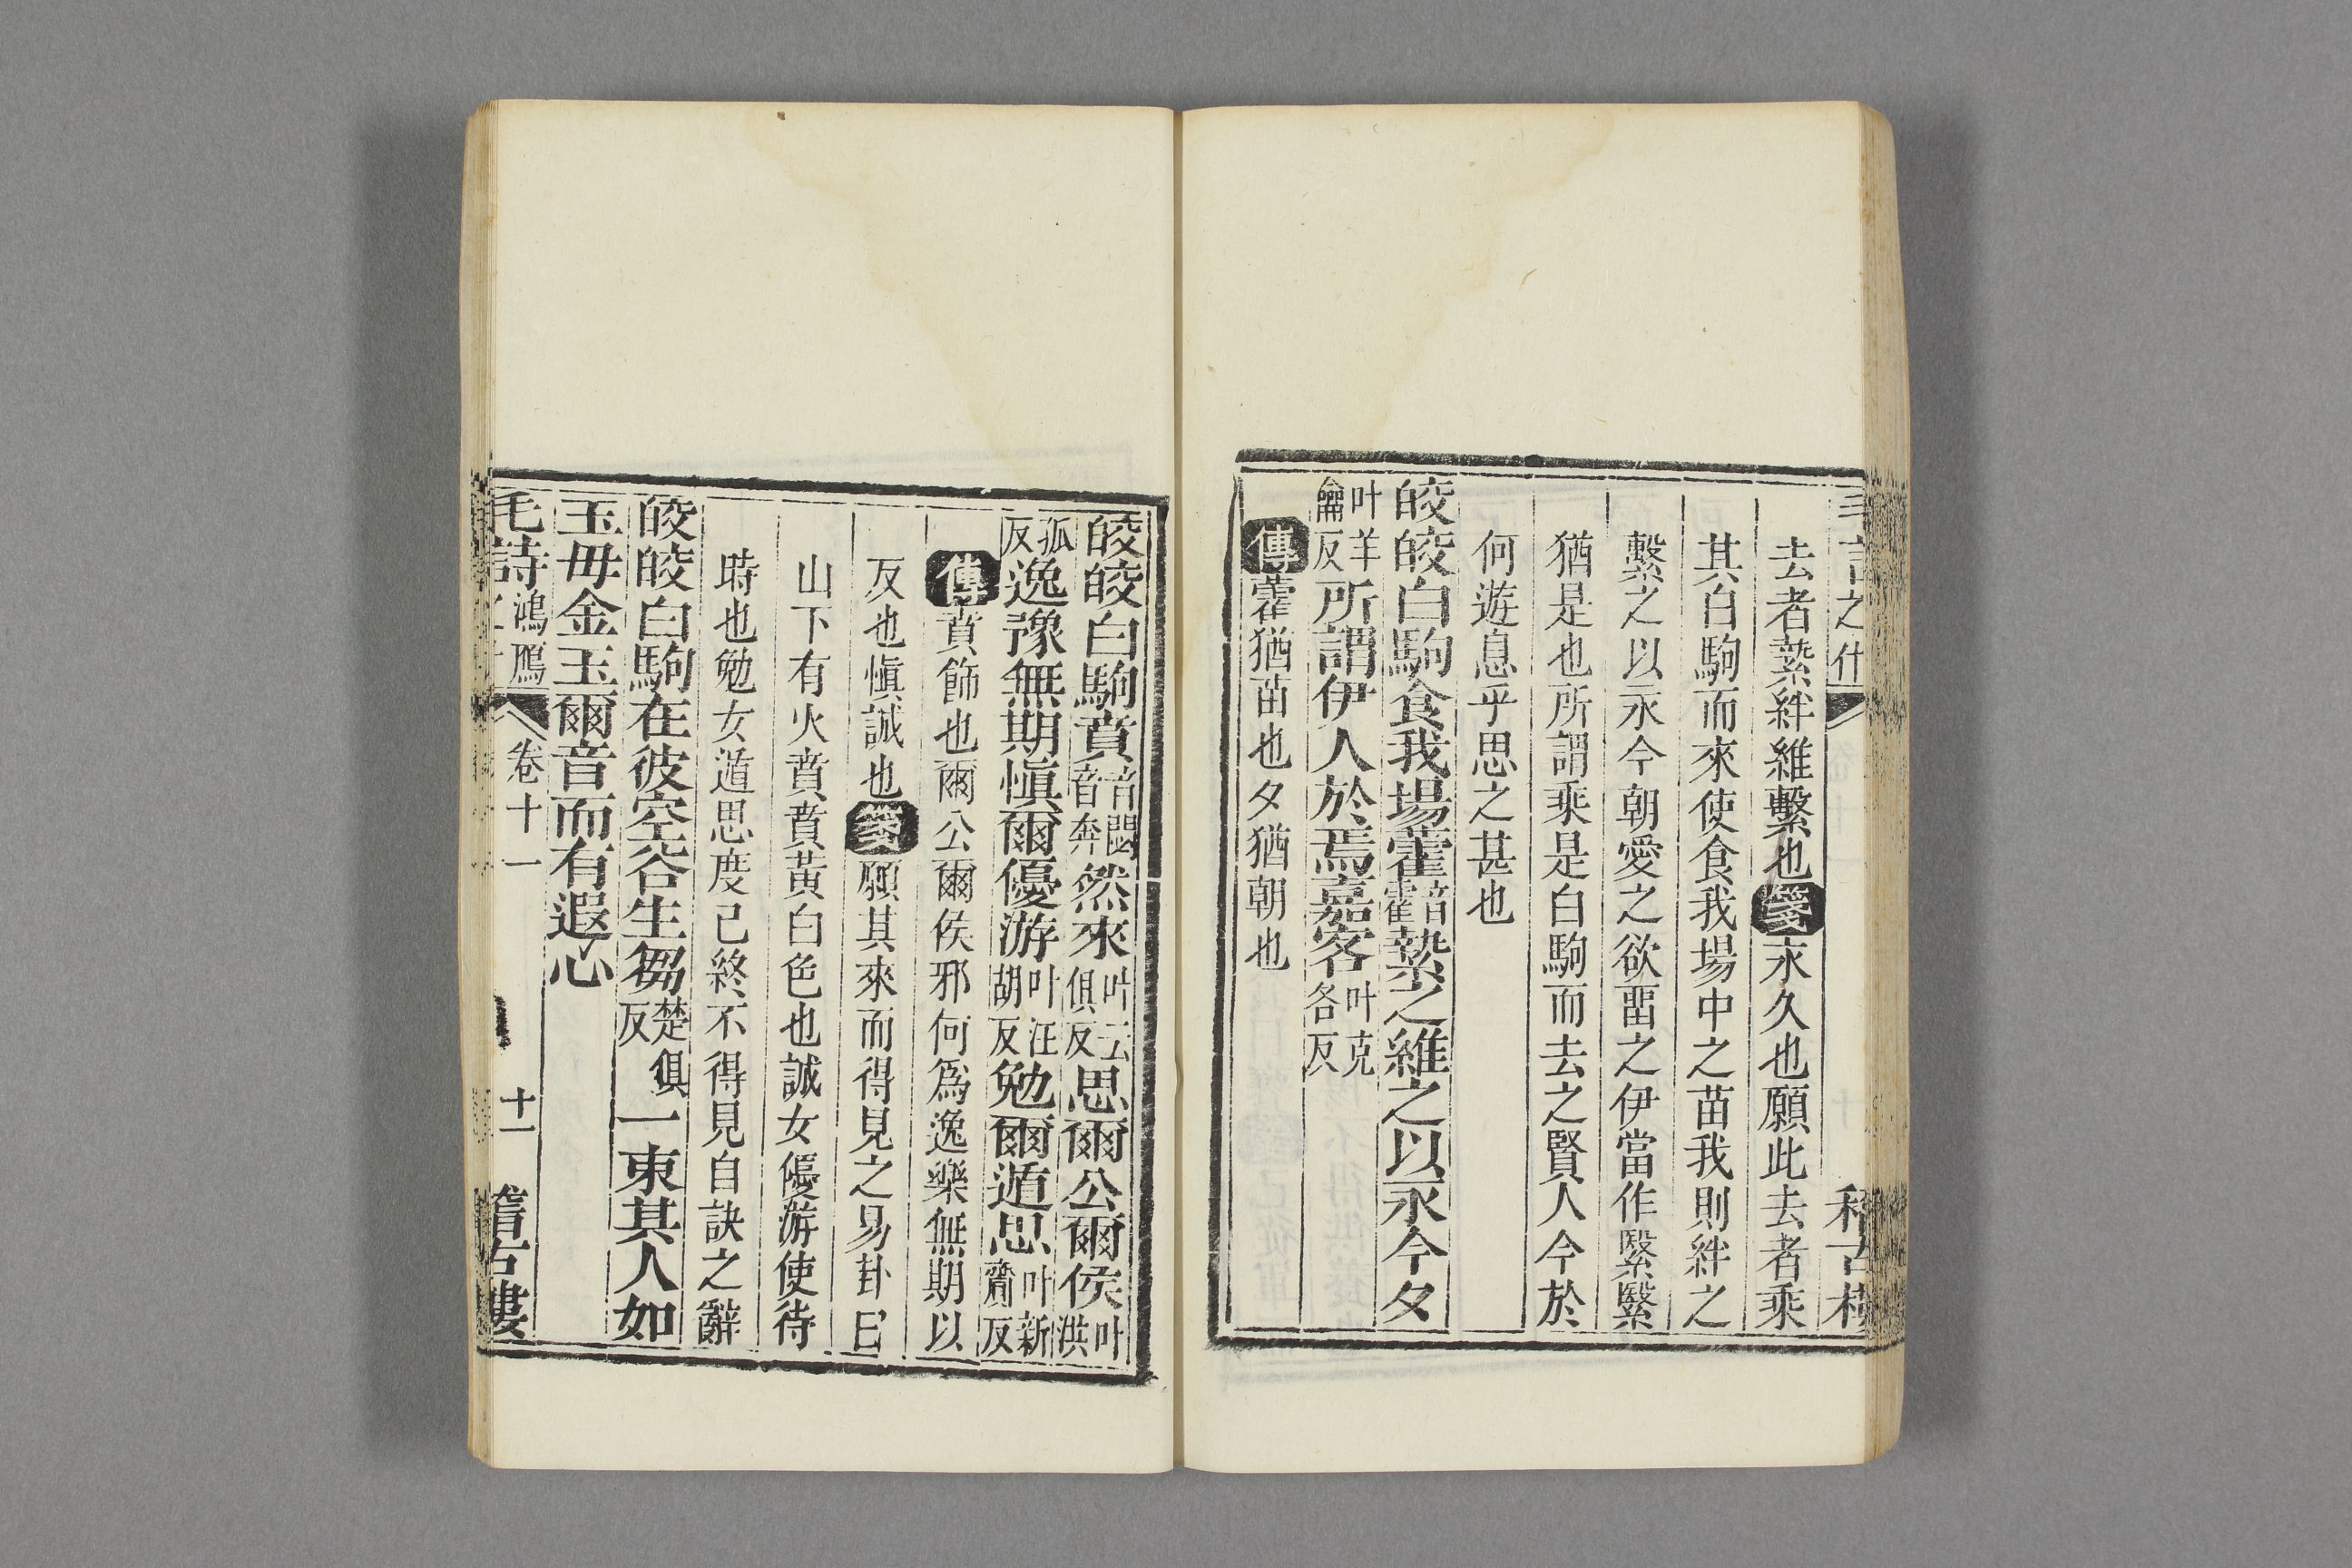 之什
去者縶絆維繫也箋永久也願此去者乘
其白駒而來使食我場中之苗我則絆之
繫之以永今朝愛之欲畱之伊當作繄繄
猶是也所謂乘是白駒而去之賢人今於
何遊息乎思之甚也
皎皎白駒食我場藿音霍縶之維之以永今夕
叶羊龠反所謂伊人於焉嘉客叶克各反
傳藿猶苗也夕猶朝也
皎皎白駒賁音閟音奔然來叶云俱反思爾公爾侯叶洪
孤反逸豫無期愼爾優游叶汪胡反勉爾遁思叶新齎反
傳賁飾也爾公爾侯邪何爲逸樂無期以
反也愼誠也箋願其來而得見之易卦曰
山下有火賁賁黃白色也誠女優游使待
時也勉女遁思度己終不得見自訣之辭
皎皎白駒在彼空谷生芻楚俱反一束其人如
玉毋金玉爾音而有遐心
毛詩鴻鴈 卷十一 十一 稽古樓